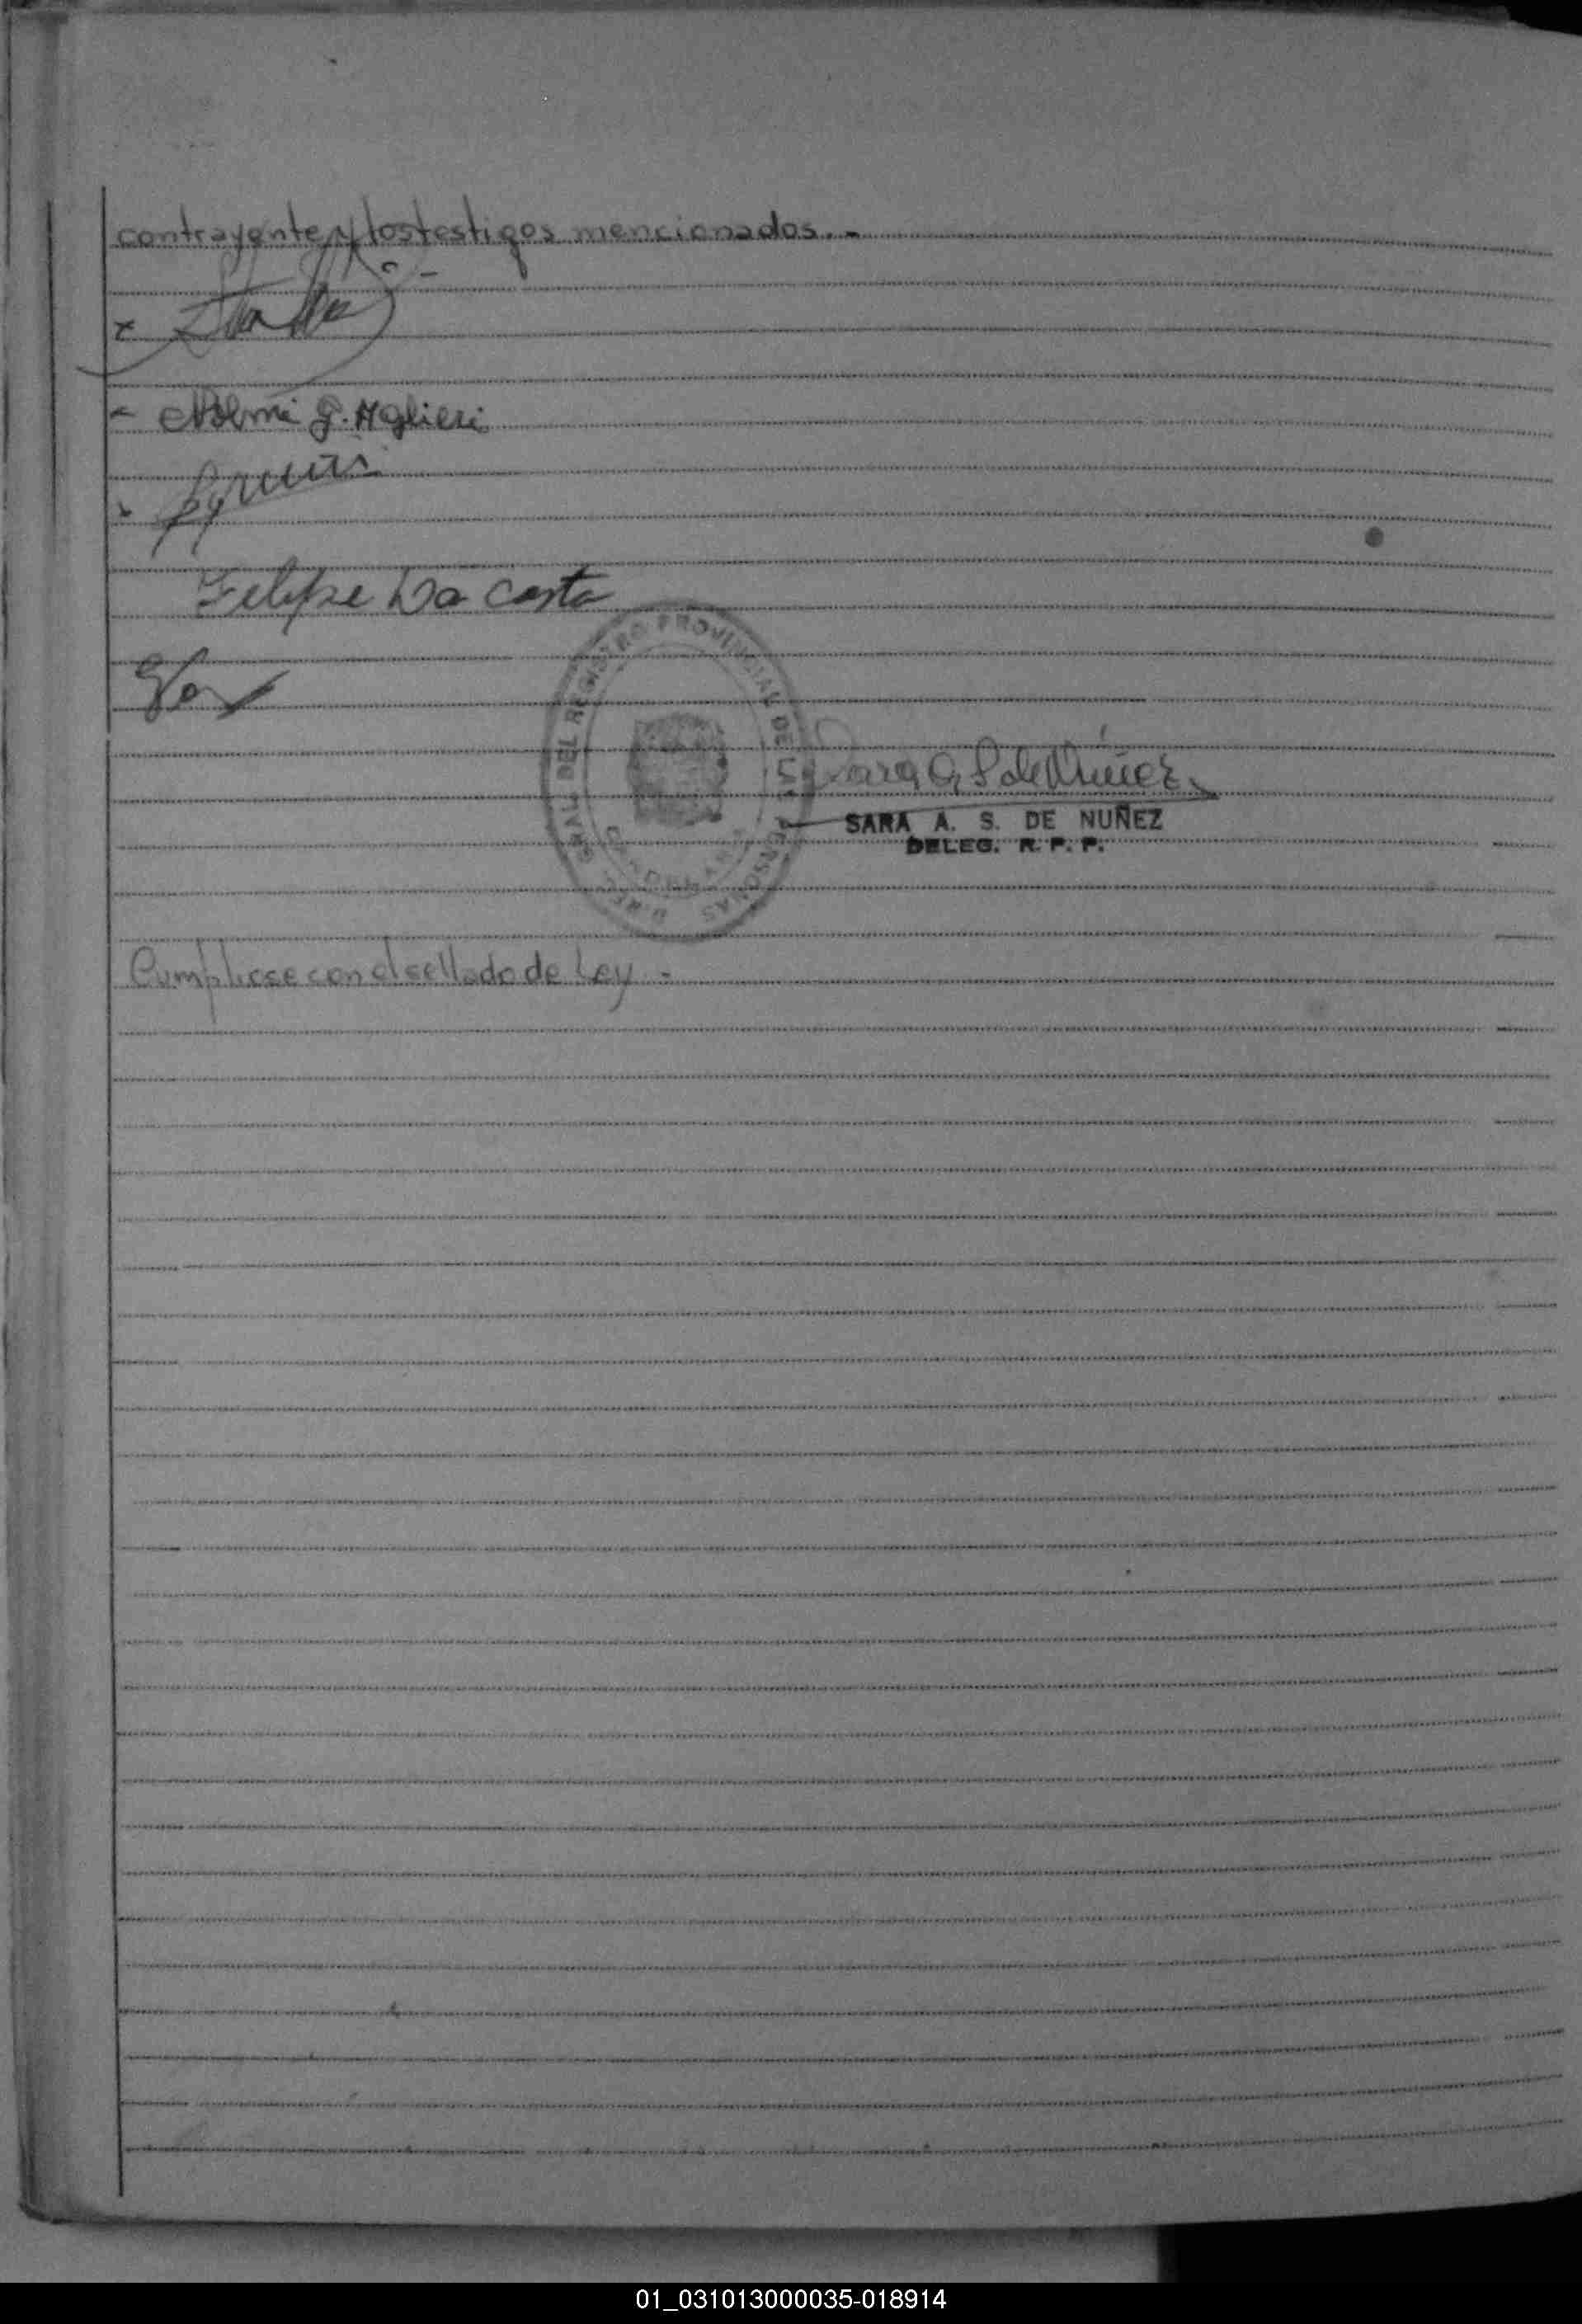 contrayente y los testigos mencionados. -
Noemi G. Aglieri
Felipe Da Costa
DIREC. GRAL. DEL REGISTRO PROVINCIAL DE LAS PERSONAS
Sara A S de Nuñez
SARA A. S. DE NUÑEZ
DELEG. R. P. P.
Cumpliose con el sellado de Ley. -
01_031013000035-018914